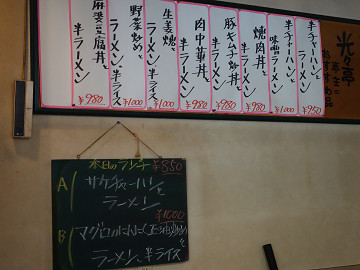 光々亭
半チャーハンと
ラーメン
¥950
半チャーハンと
味噌ラーメン
¥1000
焼肉丼と
半ラーメン
¥980
豚キムチ炒め丼と
半ラーメン
¥980
肉中華丼と
半ラーメン
¥980
生姜焼と
ラーメン・半ライス
¥1000
野菜炒めと
ラーメン・半ライス
¥1000
麻婆豆腐丼と
半ラーメン
¥980
本日のランチ ¥850
A サケチャーハンと
ラーメン
¥1000
B マグロのにんにく
ラーメン、半ライス